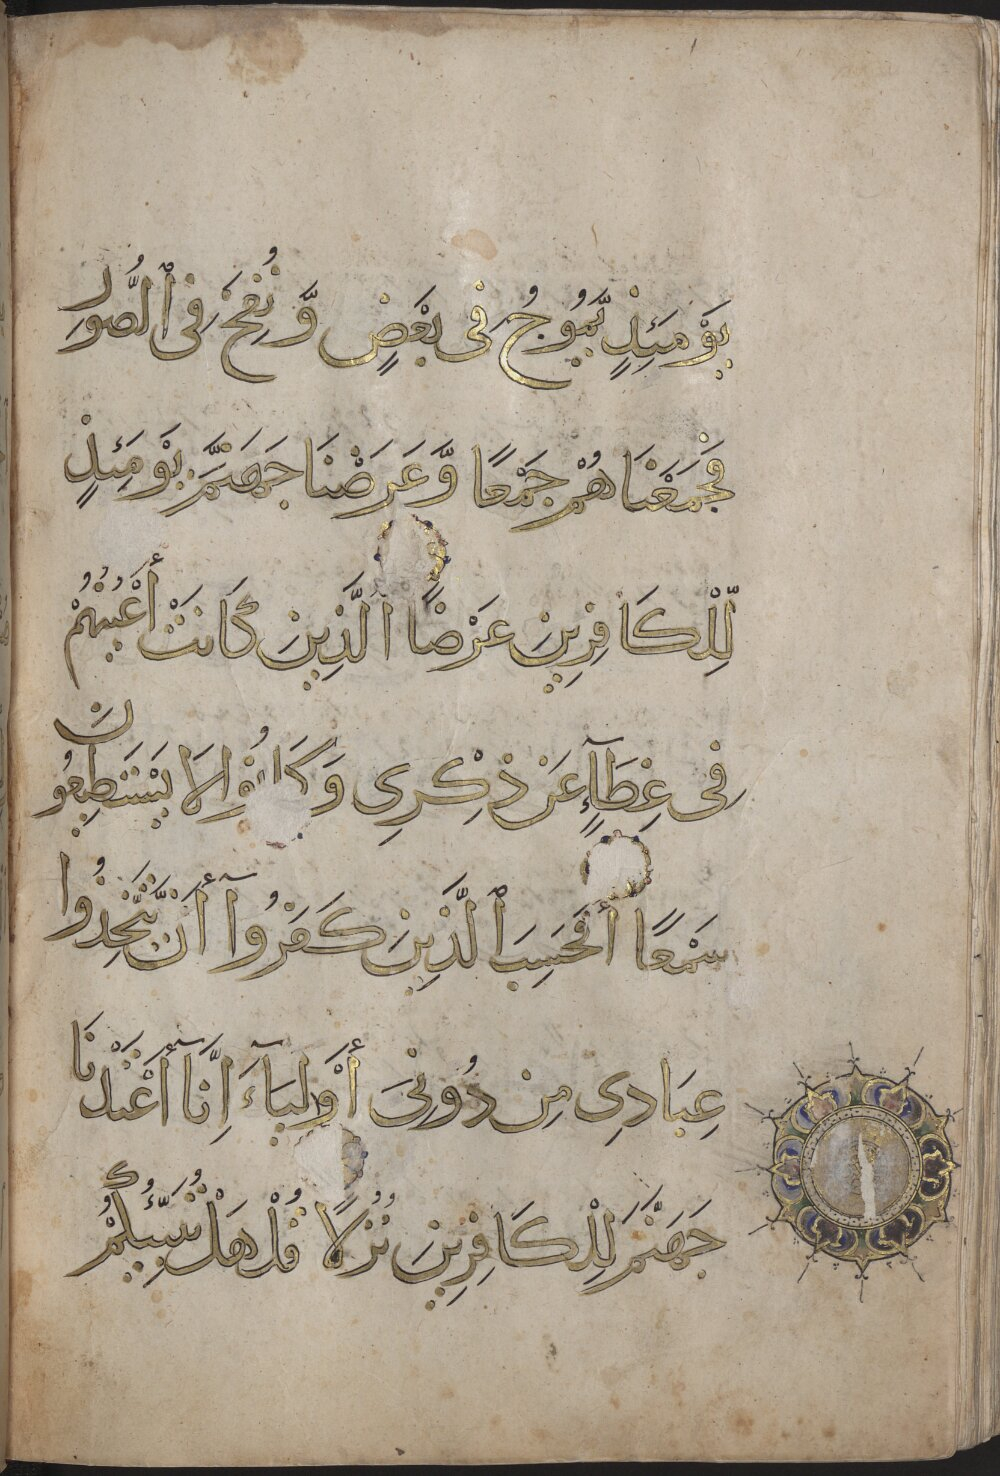 يَوْمَئِذٍ يَّمُوجُ فِى بَعْضٍ وَّنُفِخَ فِى ٱلصُّورِ
فَجَمَعْنَاهُمْ جَمْعًا وَّعَرَضْنَا جَهَنَّمَ يَوْمَئِذٍ
لِّلْكَافِرِينَ عَرْضًا الَّذِينَ كَانَتْ أَعْيُنُهُمْ
فِى غِطَآءٍ عَن ذِكْرِى وَكَانُوا لَا يَسْتَطِيعُونَ
سَمْعًا أَفَحَسِبَ ٱلَّذِينَ كَفَرُوٓا أَن يَّتَّخِذُوا
عِبَادِى مِن دُونِىٓ أَوْلِيَآءَ إِنَّآ أَعْتَدْنَا
جَهَنَّمَ لِلْكَافِرِينَ نُزُلًا قُلْ هَلْ نُنَبِّئُكُمْ